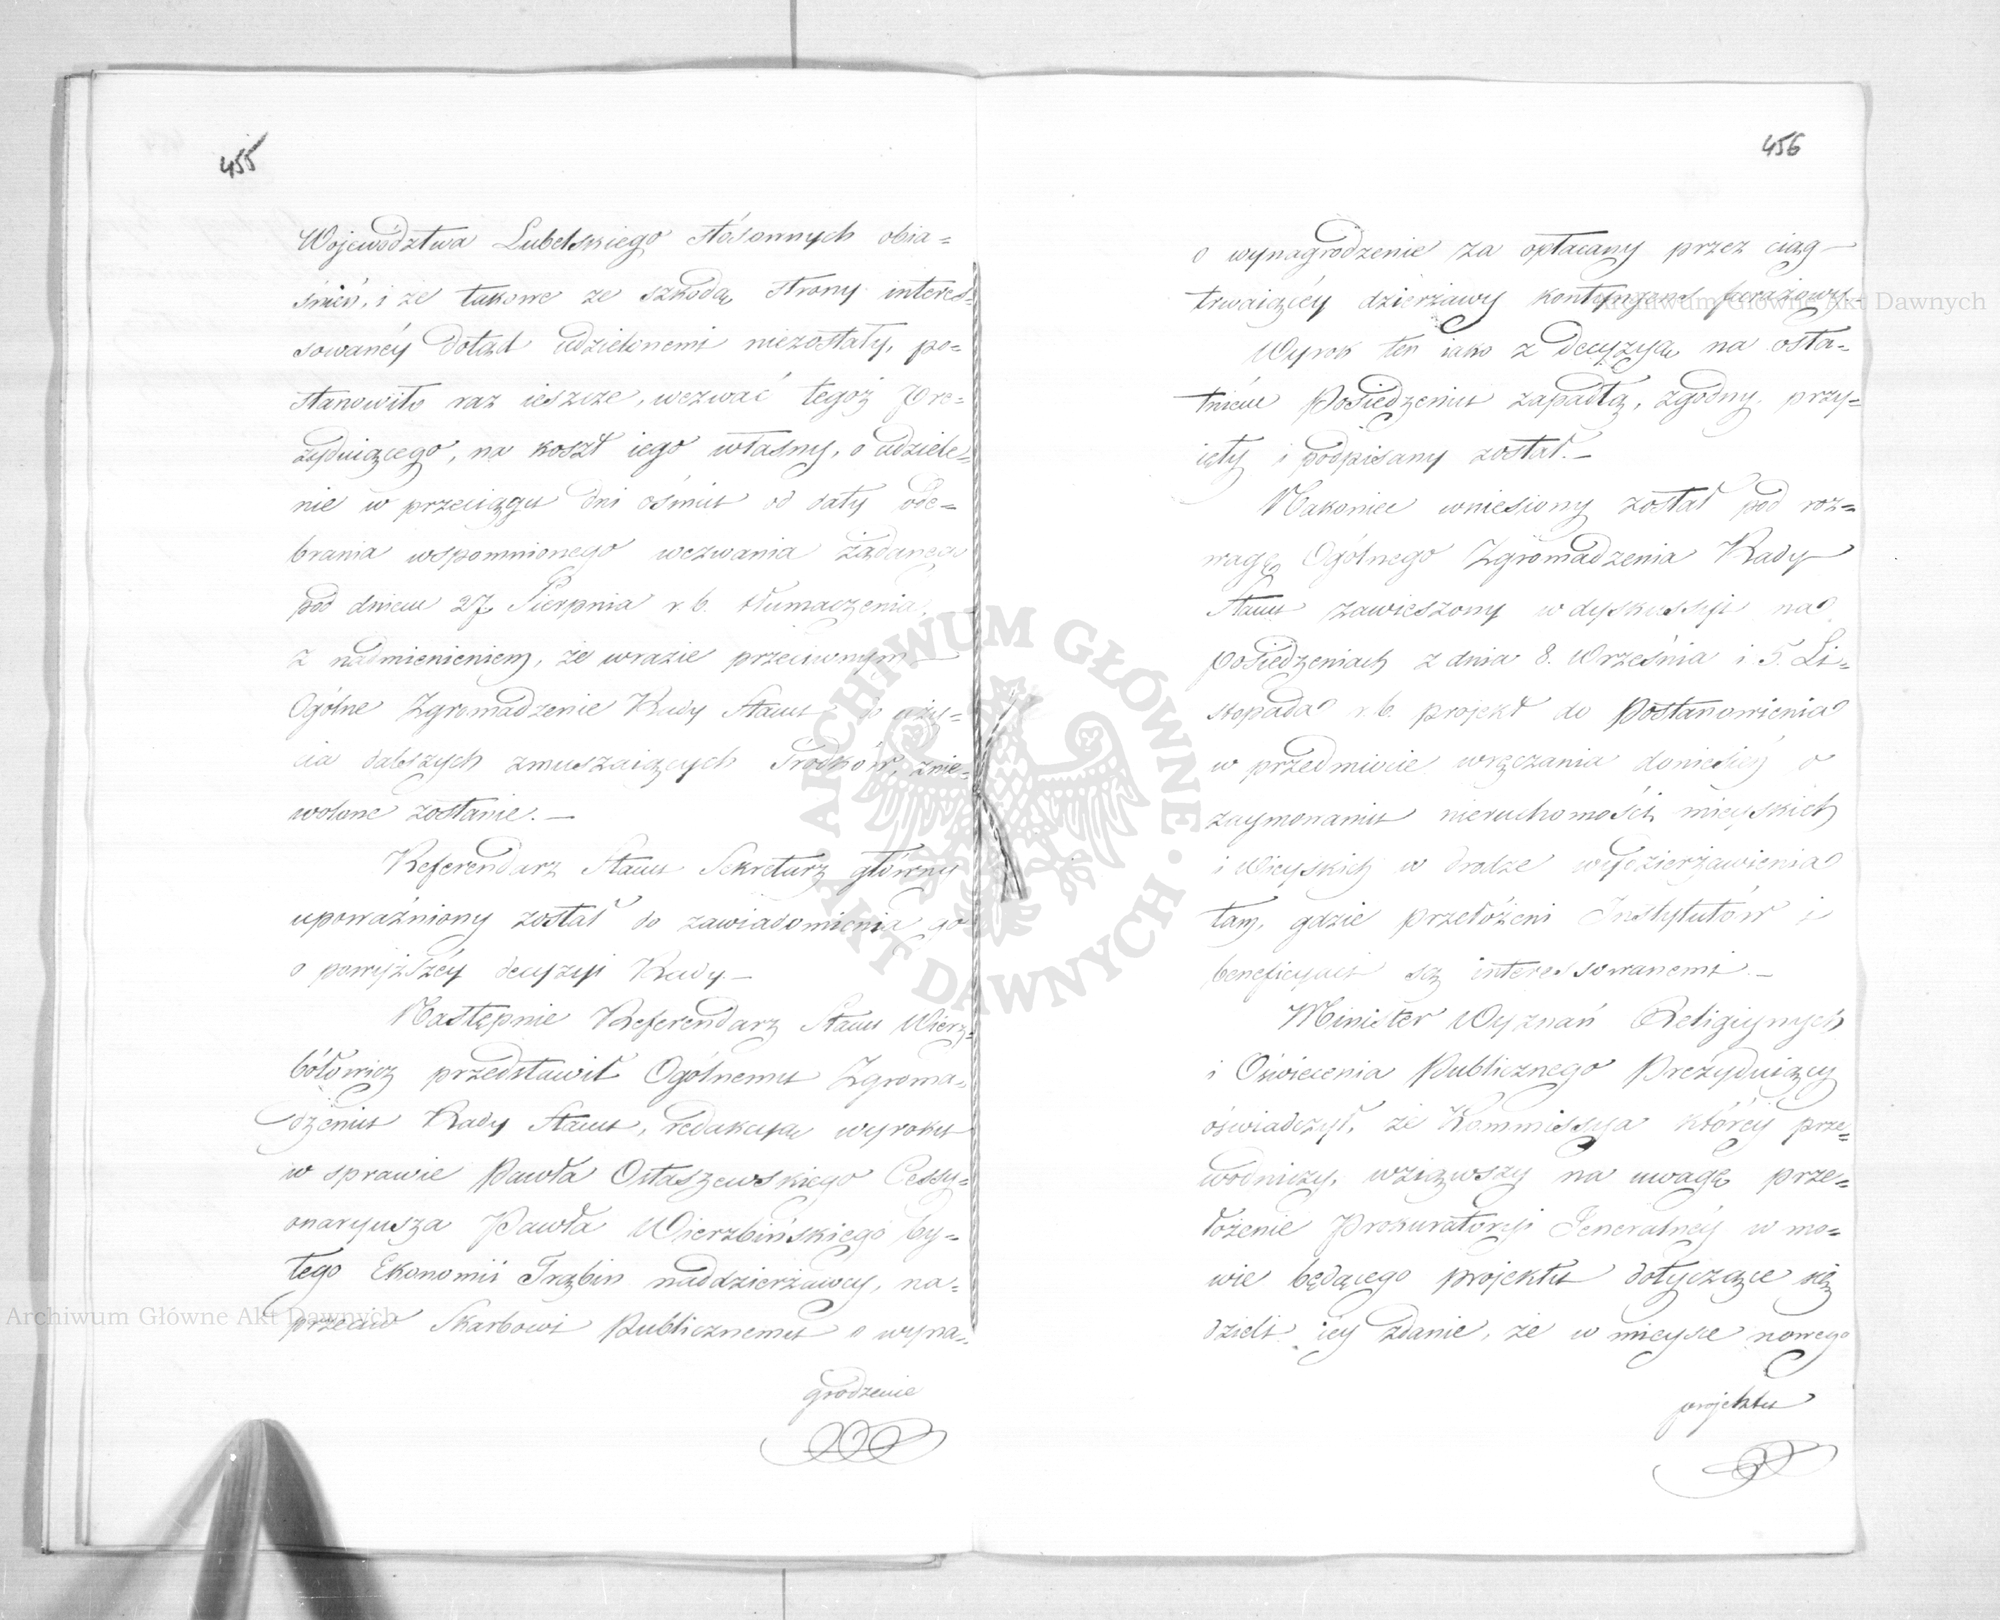 455
Województwa Lubelskiego stósownych obia=
śnień, i że takowe ze szkodą strony interes=
sowanéy dotąd udzielonemi niezostały, po=
stanowiło raz ieszcze, wezwać tegoż Pre=
zyduiącego, na koszt iego własny, o udziele=
nie w przeciągu dni ośmiu od daty ode=
brania wspomnionego wezwania żądanego
pod dniem 27 Sierpnia r. b. tłumaczenia,
z nadmienieniem, że wrazie przeciwnym
Ogólne Zgromadzenie Rady Stanu do uży=
cia dalszych zmuszaiących środków, znie=
wolone zostanie.—
Referendarz Stanu Sekretarz główny
upoważniony został do zawiadomienia go
o powyższéy decyzyi Rady.—
Następnie Referendarz Stanu Wierz=
bółowicz przedstawił Ogólnemu Zgroma=
dzeniu Rady Stanu, redakcyą wyroku
w sprawie Pawła Ostaszewskiego Cessy=
onaryusza Pawła Wierzbińskiego by=
łego Ekonomii Trąbin naddzierżawcy, na=
przeciw Skarbowi Publicznemu o wyna=
grodzenie
456
o wynagrodzenie za opłacany przez ciąg
trwaiącéy dzierżawy kontyngens liwerazowy.—
Wyrok ten iako z decyzyą na osta=
tniém Posiedzeniu zapadłą, zgodny, przy=
ięty i podpisany został.—
Nakoniec wniesiony został pod roz=
wagę Ogólnego Zgromadzenia Rady
Stanu zawieszony w dyskussyi na
posiedzeniach z dnia 8. Września i 5. Li=
stopada r. b. projekt do Postanowienia
w przedmiocie wręczania doniesień o
zaymowaniu nieruchomości mieyskich
i wieyskich w drodze wydzierżawienia
tam, gdzie przełożeni Instytutów i
beneficyanci są interessowanemi.—
Minister Wyznań Religiynych
i Oświecenia Publicznego Prezyduiący
oświadczył, że Kommissya któréy prze=
wodniczy, wziąwszy na uwagę prze=
łożenie Prokuratoryi Jeneralnéy w mo=
wie będącego projektu dotyczące się
dzieli iéy zdanie, że w mieysce nowego
projektu
Archiwum Główne Akt Dawnych
Archiwum Główne Akt Dawnych
ARCHIWUM GŁÓWNE
AKT DAWNYCH